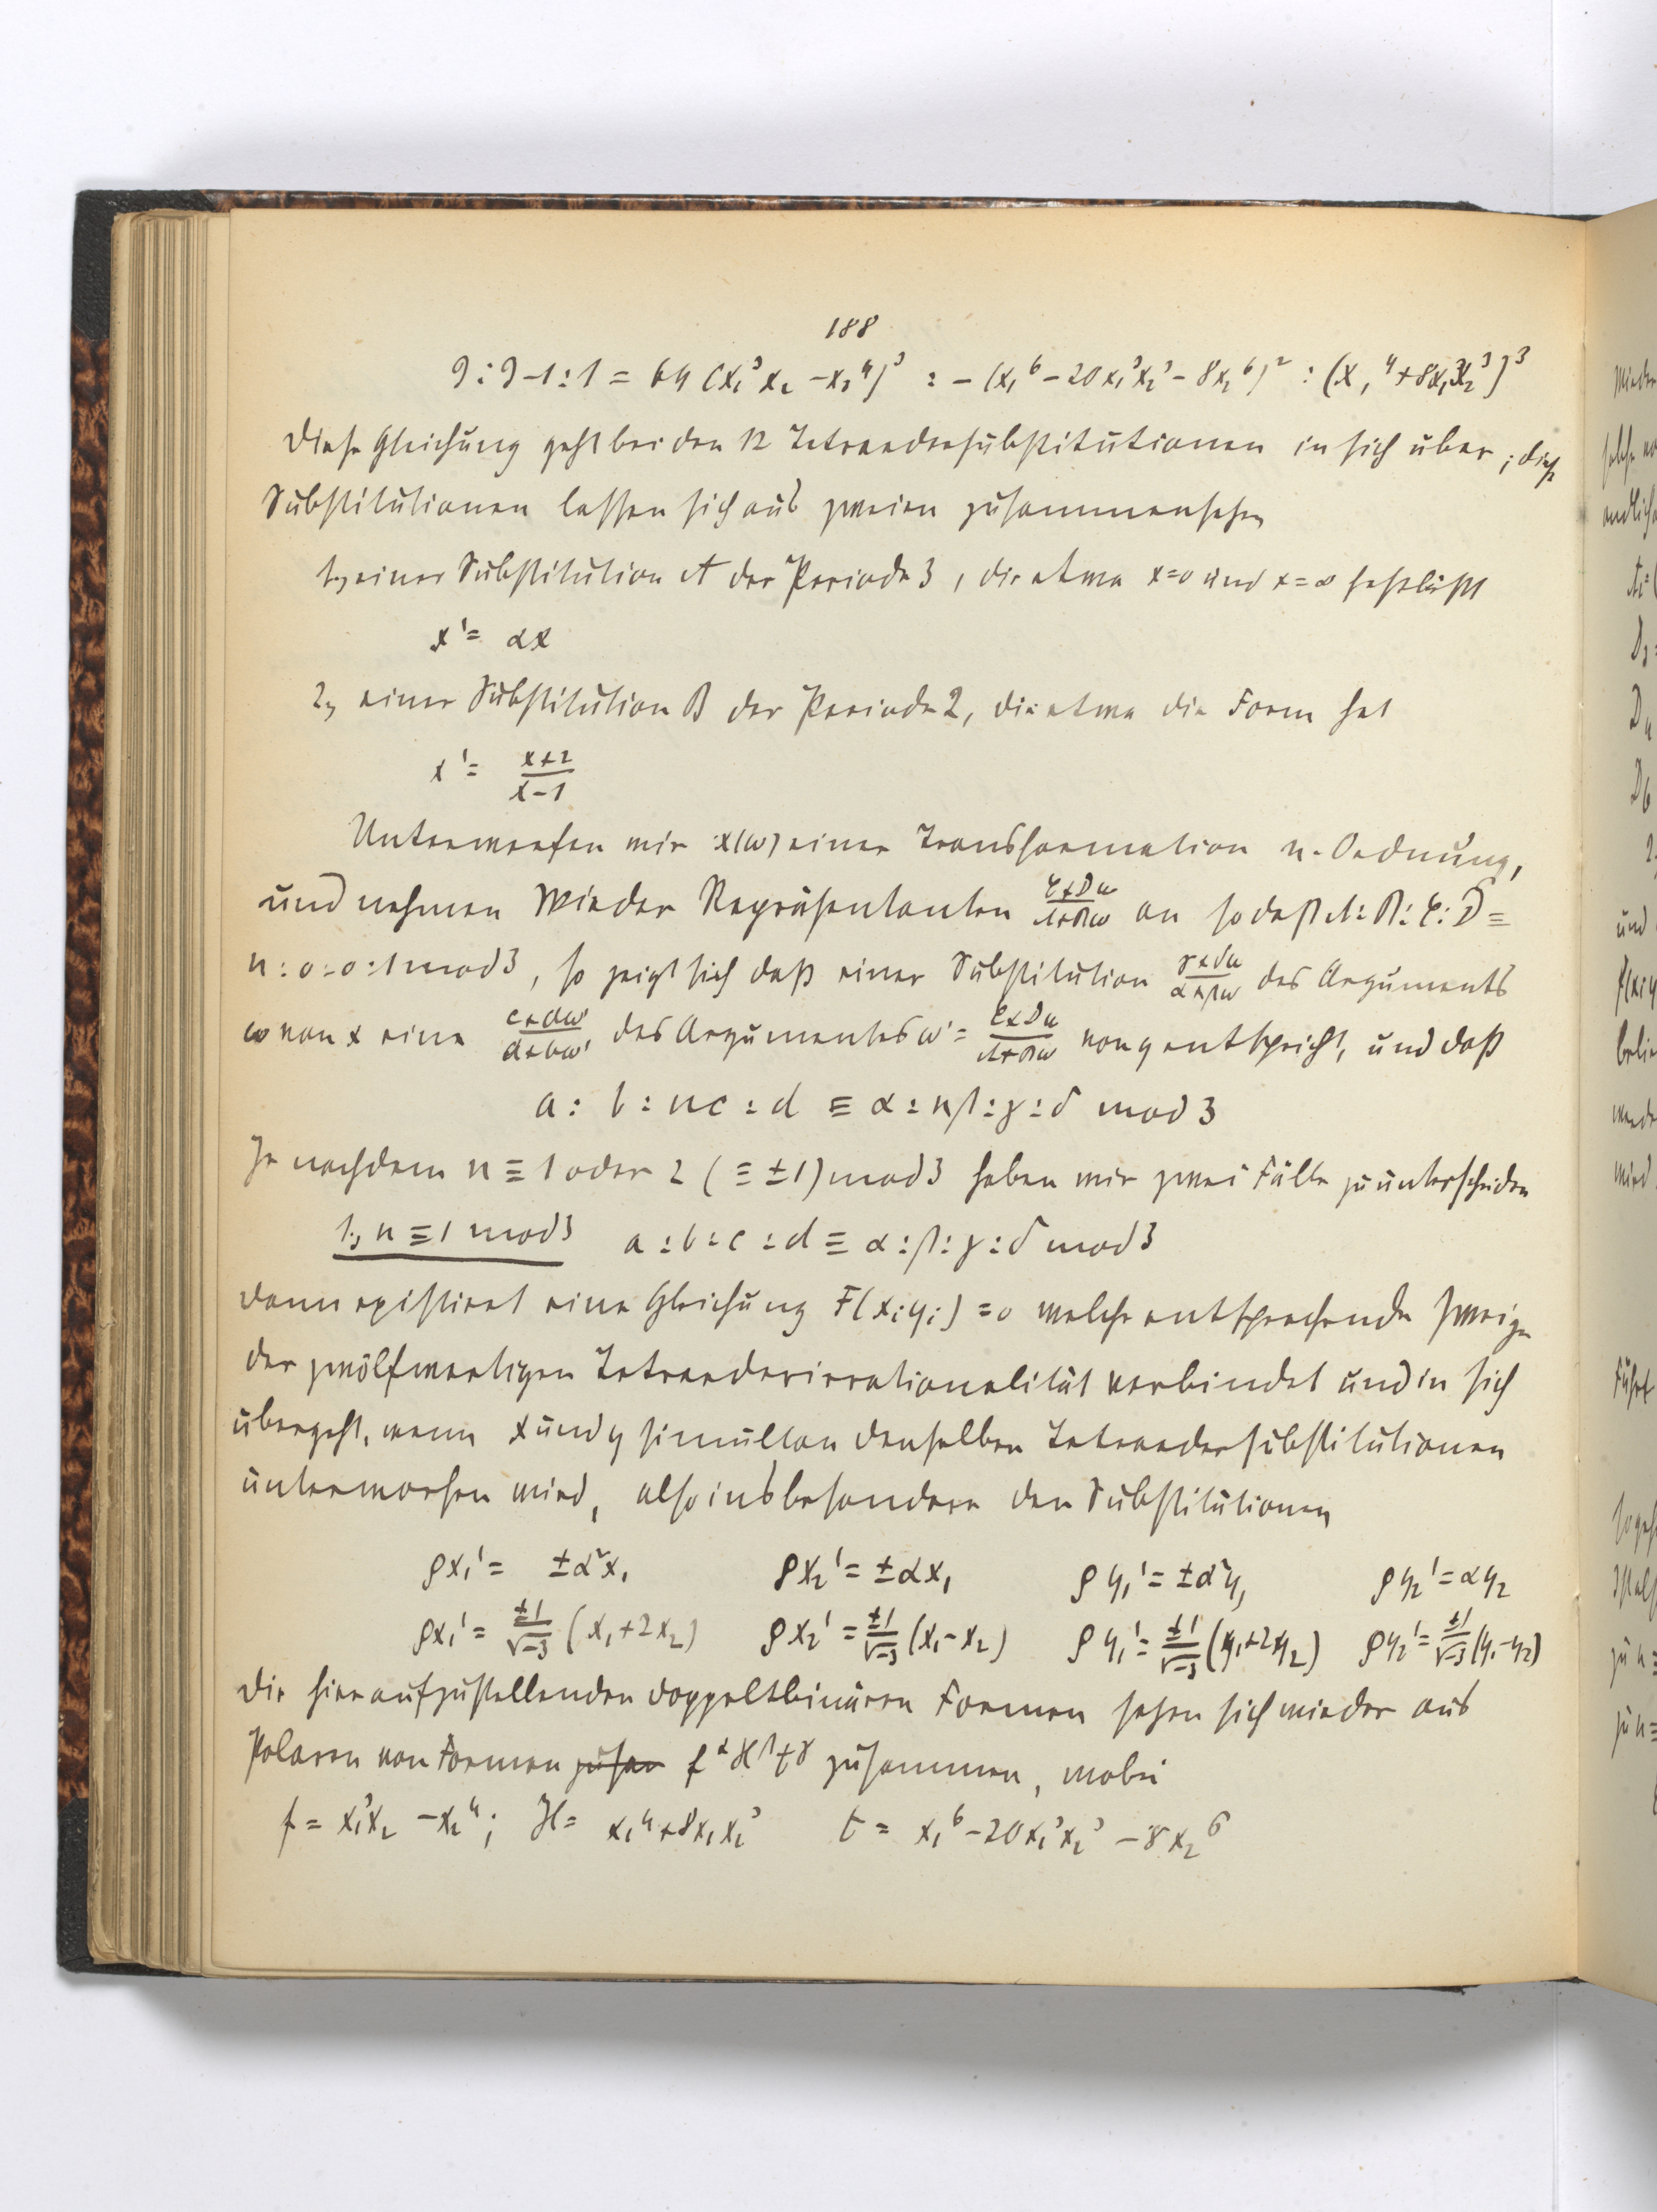 188
J : J-1 : 1 = 64 (x₁³x₂ - x₂⁴)³ : - (x₁⁶ - 20x₁³x₂³ - 8x₂⁶)² : (x₁⁴ + 8x₁x₂³)³
Diese Gleichung geht bei den 12 Tetraedersubstitutionen in sich über; diese
Substitutionen lassen sich aus zweien zusammensetzen
1, einer Substitution A der Periode 3, die etwa x=0 und x=∞ festläßt
x' = αx
2, einer Substitution B der Periode 2, die etwa die Form hat
x' = (x+2)/(x-1)
Unterwerfen wir x(ω) einer Transformation n. Ordnung,
und nehmen wieder Repräsentanten (C+Dω)/(A+Bω) an so daß A:B:C:D ≡
n:0:0:1 mod 3, so zeigt sich daß einer Substitution (γ+δω)/(α+βω) des Arguments
ω von x eine (c+dω')/(a+bω') des Argumentes ω' = (C+Dω)/(A+Bω) von y entspricht, und daß
a : b : nc : d ≡ α : nβ : γ : δ mod 3
Je nachdem n ≡ 1 oder 2 (≡ ±1) mod 3 haben wir zwei Fälle zu unterscheiden
1, n ≡ 1 mod 3 a : b : c : d ≡ α : β : γ : δ mod 3
dann existirt eine Gleichung F(xᵢyᵢ) = 0 welche entsprechende Zweige
der zwölfwertigen Tetraederirrationalität verbindet und in sich
übergeht, wenn x und y simultan denselben Tetraedersubstitutionen
unterworfen wird, also insbesondere den Substitutionen
ρx₁' = ±α²x₁ ρx₂' = ±αx₁ ρy₁' = ±α²y₁ ρy₂' = αy₂
ρx₁' = ±1/√-3 (x₁+2x₂) ρx₂' = ±1/√-3 (x₁-x₂) ρy₁' = ±1/√-3 (y₁+2y₂) ρy₂' = ±1/√-3 (y₁-y₂)
Die hier aufzustellenden doppeltbinären Formen setzen sich wieder aus
Polaren von Formen zusam f^α H^β t^γ zusammen, wobei
f = x₁³x₂ - x₂⁴; H = x₁⁴ + 8x₁x₂³ t = x₁⁶ - 20x₁³x₂³ - 8x₂⁶